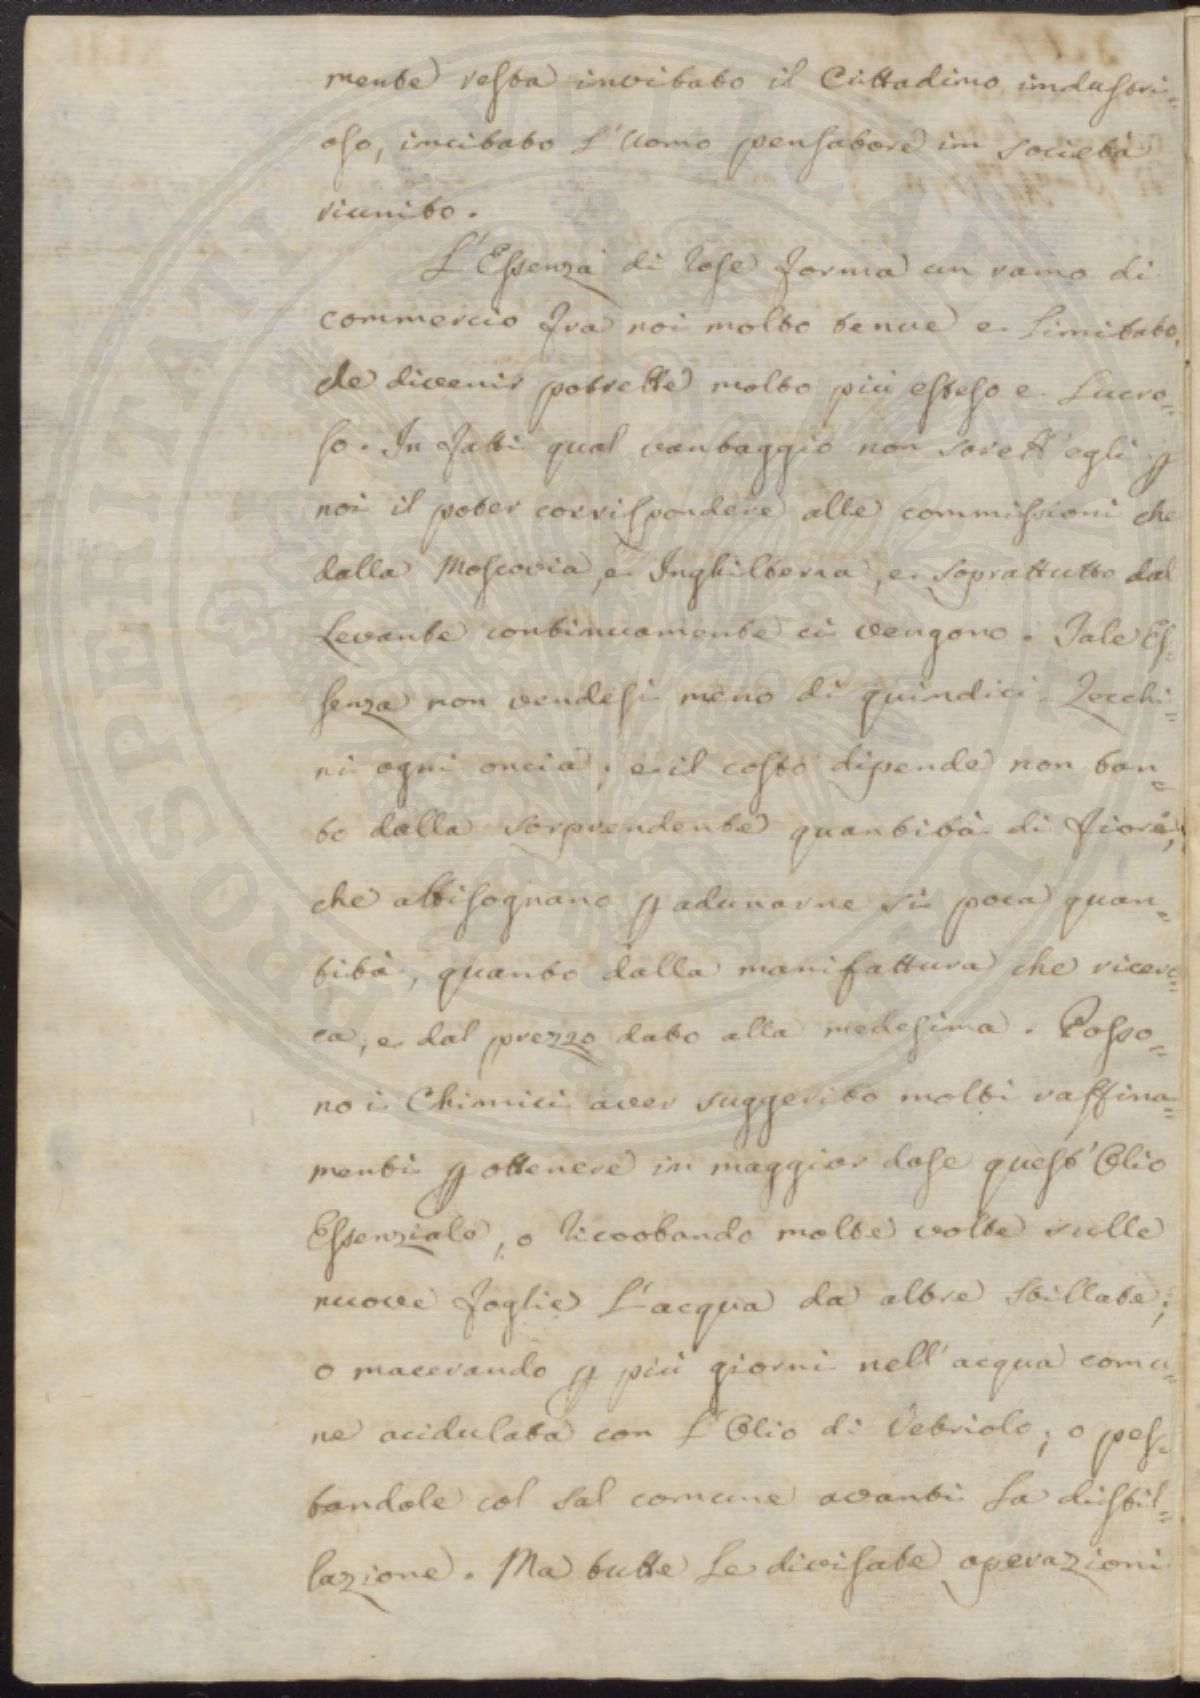 mente resta invitato il Cittadino industri=
oso, incitato l'Uomo pensatore in società
riunito.
L'Essenza di Rose forma un ramo di
commercio fra noi molto tenue e limitato,
che divenir potrebbe molto più esteso e lucro=
so. In fatti qual vantaggio non sarebb'egli p
noi il poter corrispondere alle commissioni che
dalla Moscovia, e Inghilterra, e soprattutto dal
Levante continuamente ci vengono. Tale Es=
senza non vendesi meno di quindici Zecchi=
ni ogni oncia; e il costo dipende non tan=
to dalla sorprendente quantità di fiori,
che abbisognano p adunarne sì poca quan=
tità, quanto dalla manifattura che ricer=
ca, e dal prezzo dato alla medesima. Posso=
no i Chimici aver suggerito molti raffina=
menti p ottenere in maggior dose quest'Olio
Essenziale, o ricoobando molte volte sulle
nuove foglie l'acqua da altre stillate;
o macerando p più giorni nell'acqua comu=
ne acidulata con l'Olio di Vetriolo; o pes=
tandole col sal comune avanti la distil=
lazione. Ma tutte le divisate operazioni
PROSPERITATI PUBLICAE AUGENDAE